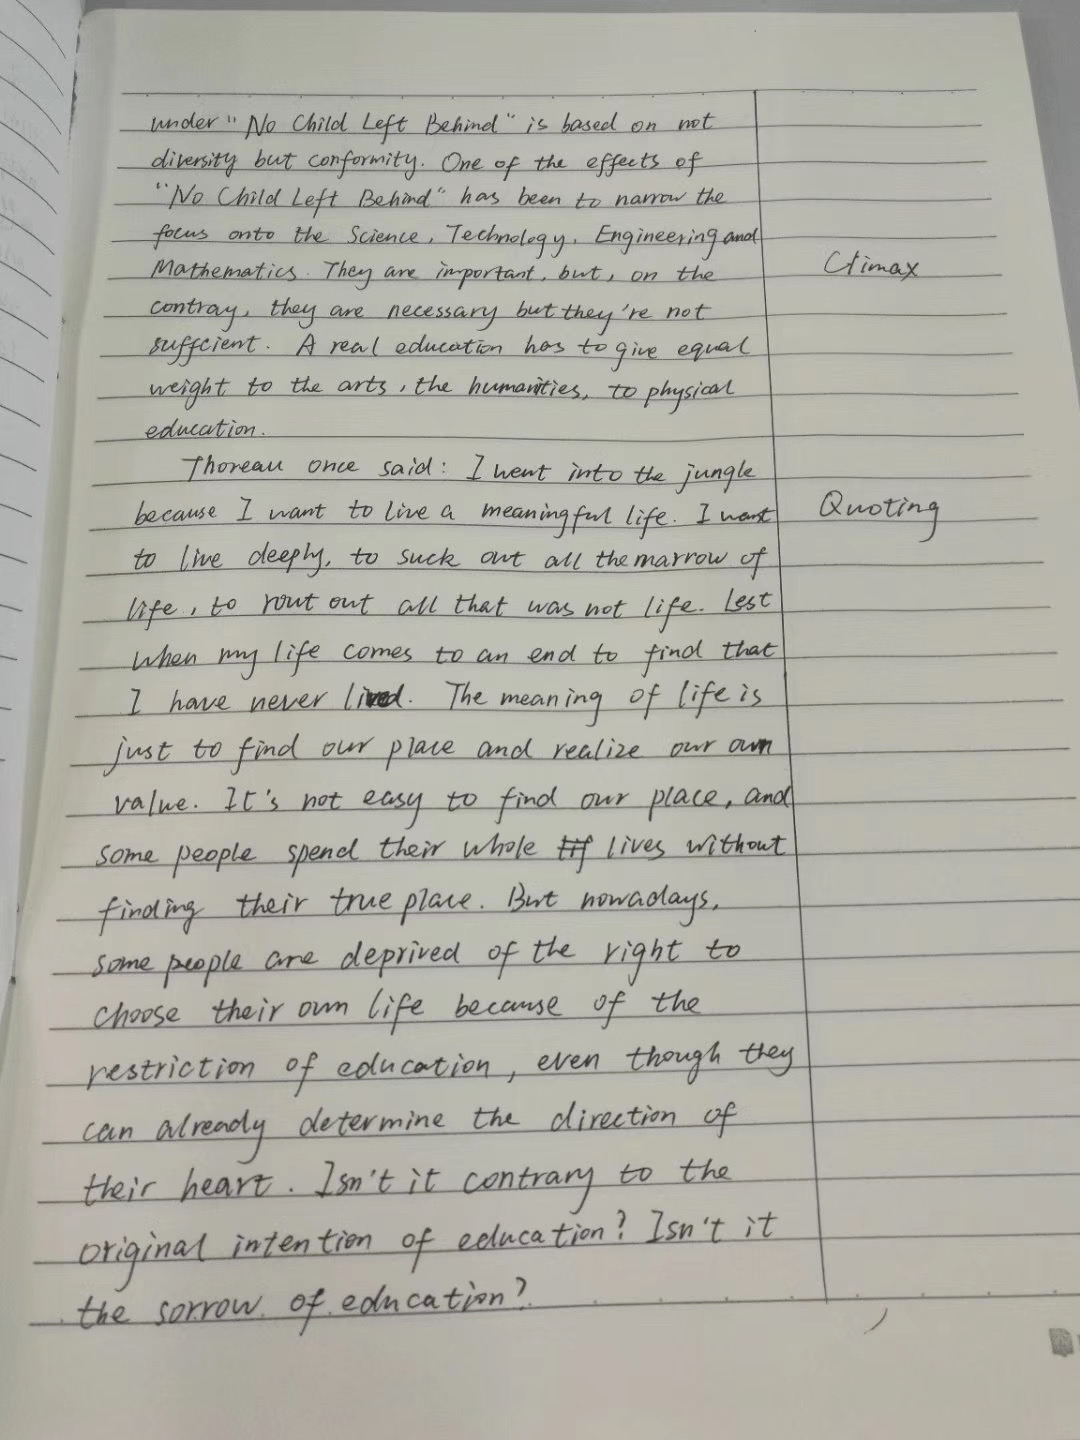 under "No Child Left Behind" is based on not
diversity but conformity. One of the effects of
"No Child Left Behind" has been to narrow the
focus onto the Science, Technology, Engineering and
Mathematics. They are important, but, on the
Climax
contray, they are necessary but they're not
suffcient. A real education has to give equal
weight to the arts, the humanities, to physical
education.
Thoreau once said: I went into the jungle
because I want to live a meaningful life. I want
Quoting
to live deeply, to suck out all the marrow of
life, to rout out all that was not life. Lest
when my life comes to an end to find that
I have never lived. The meaning of life is
just to find our place and realize our own
value. It's not easy to find our place, and
some people spend their whole lives without
finding their true place. But nowadays,
some people are deprived of the right to
choose their own life because of the
restriction of education, even though they
can already determine the direction of
their heart. Isn't it contrary to the
original intention of education? Isn't it
the sorrow of education?